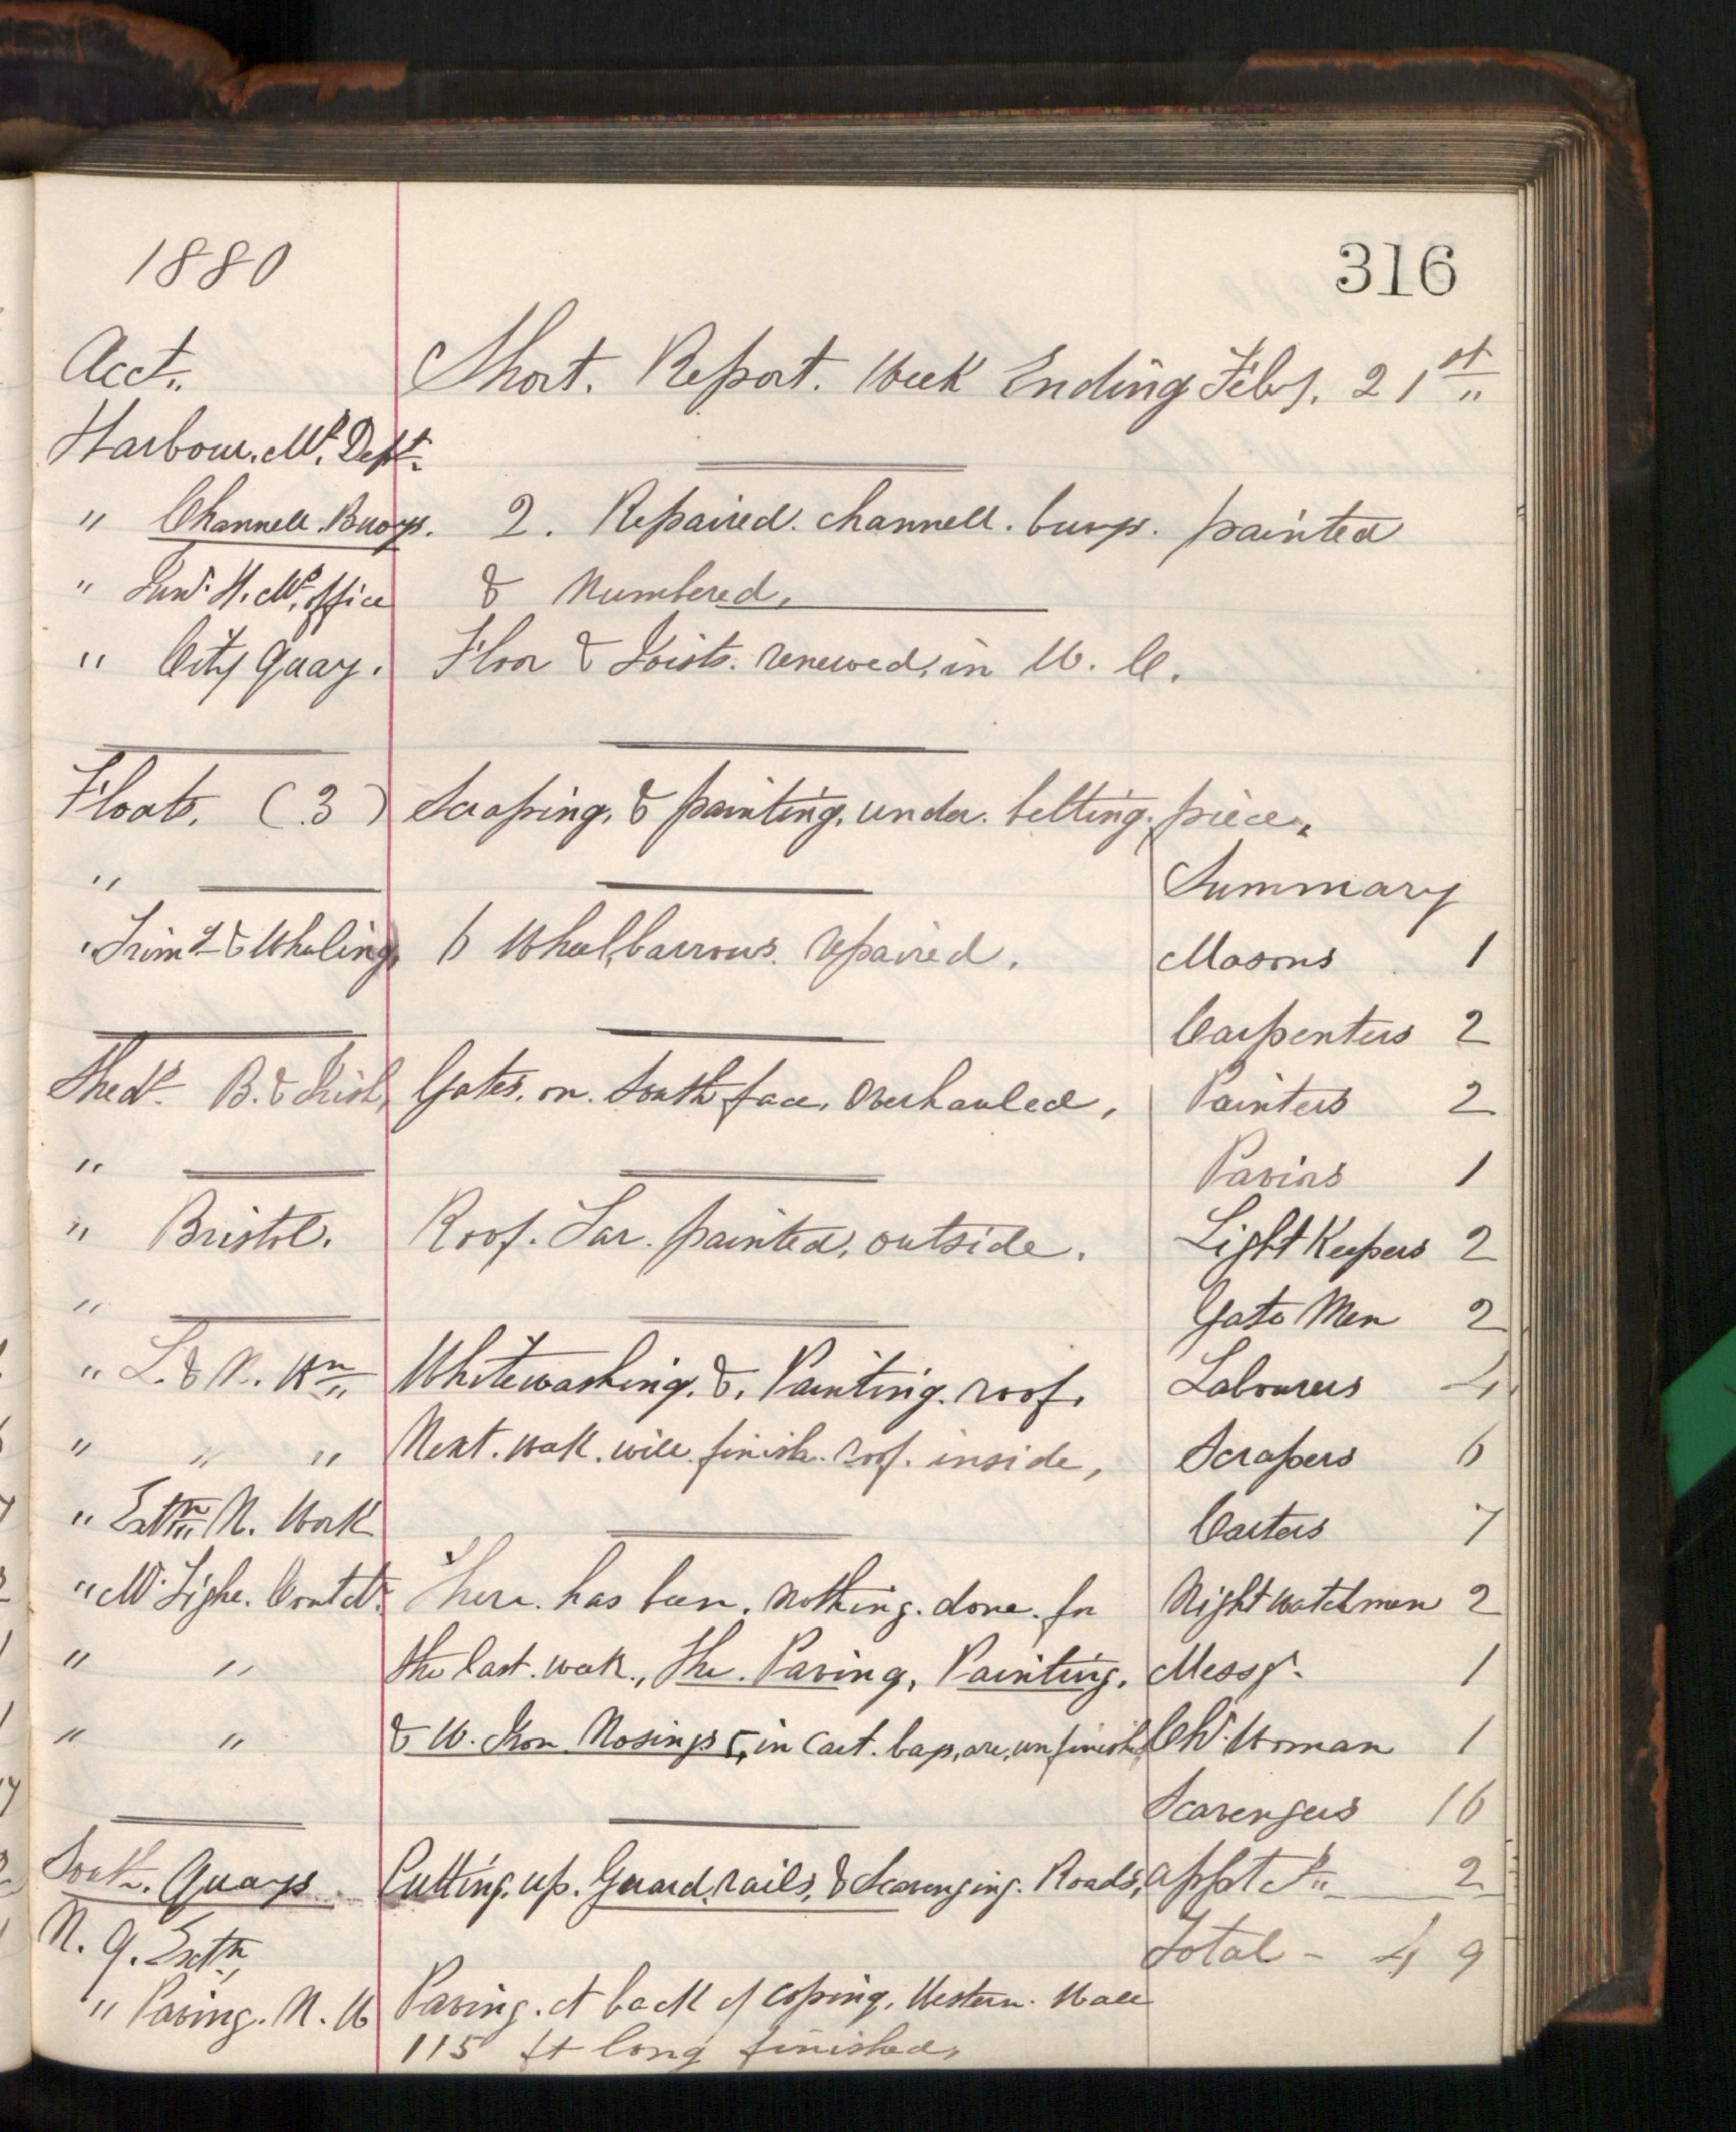 1880
316
Acct.,, Short. Report. Week Ending Feby. 21st,,
Harbour. Mr. Dept.
" Channell. Buoys. 2. Repaired. channell. buoys. painted
" Sun'. H. Mr. office & Numbered.
" City Quay. Floor & Joists. renewed, in W. C.
Floats. (3) Scraping, & painting, under. belting. piece,,
" Summary
" Trimg. & Whaling, 6 Wheelbarrows. repaired. Masons 1
Carpenters 2
Shed. B. & Irish, Gates. on. South face. Overhauled, Painters 2
" Paviors 1
" Bristol. Roof. Tar. painted, outside. Light Keepers 2
" Gate Men 2
" L. & N. Wn,, Whitewashing. &. Painting. roof. Labourers 4
" " " Next. week. will. finish. roof. inside, Scrapers 6
" Extn. N. Work Carters 7
" Mr. Tighe. Contct. There. has been. nothing. done. for Night watchmen 2
" " the last. week., The. Paving, Painting, Messgr. 1
" " & W. Iron Nosings, in Cart. bays, are, unfinish, Chr. Woman 1
Scavengers 16
South. Quays. Cutting. up. Guard. rails, & Scavenging. Roads, appt 2
N. Q. Extn, Total - 49
" Paving. N. W Paving. at back of coping. Western. Wall
115 ft long finished,